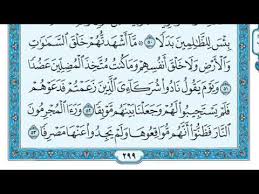 بِئْسَ لِلظَّٰلِمِينَ بَدَلًا ۝٥٠ مَّآ أَشْهَدتُّهُمْ خَلْقَ ٱلسَّمَٰوَٰتِ
وَٱلْأَرْضِ وَلَا خَلْقَ أَنفُسِهِمْ وَمَا كُنتُ مُتَّخِذَ ٱلْمُضِلِّينَ عَضُدًا
۝٥١ وَيَوْمَ يَقُولُ نَادُوا۟ شُرَكَآءِىَ ٱلَّذِينَ زَعَمْتُمْ فَدَعَوْهُمْ
فَلَمْ يَسْتَجِيبُوا۟ لَهُمْ وَجَعَلْنَا بَيْنَهُم مَّوْبِقًا ۝٥٢ وَرَءَا ٱلْمُجْرِمُونَ
ٱلنَّارَ فَظَنُّوٓا۟ أَنَّهُم مُّوَاقِعُوهَا وَلَمْ يَجِدُوا۟ عَنْهَا مَصْرِفًا ۝٥٣
٢٩٩